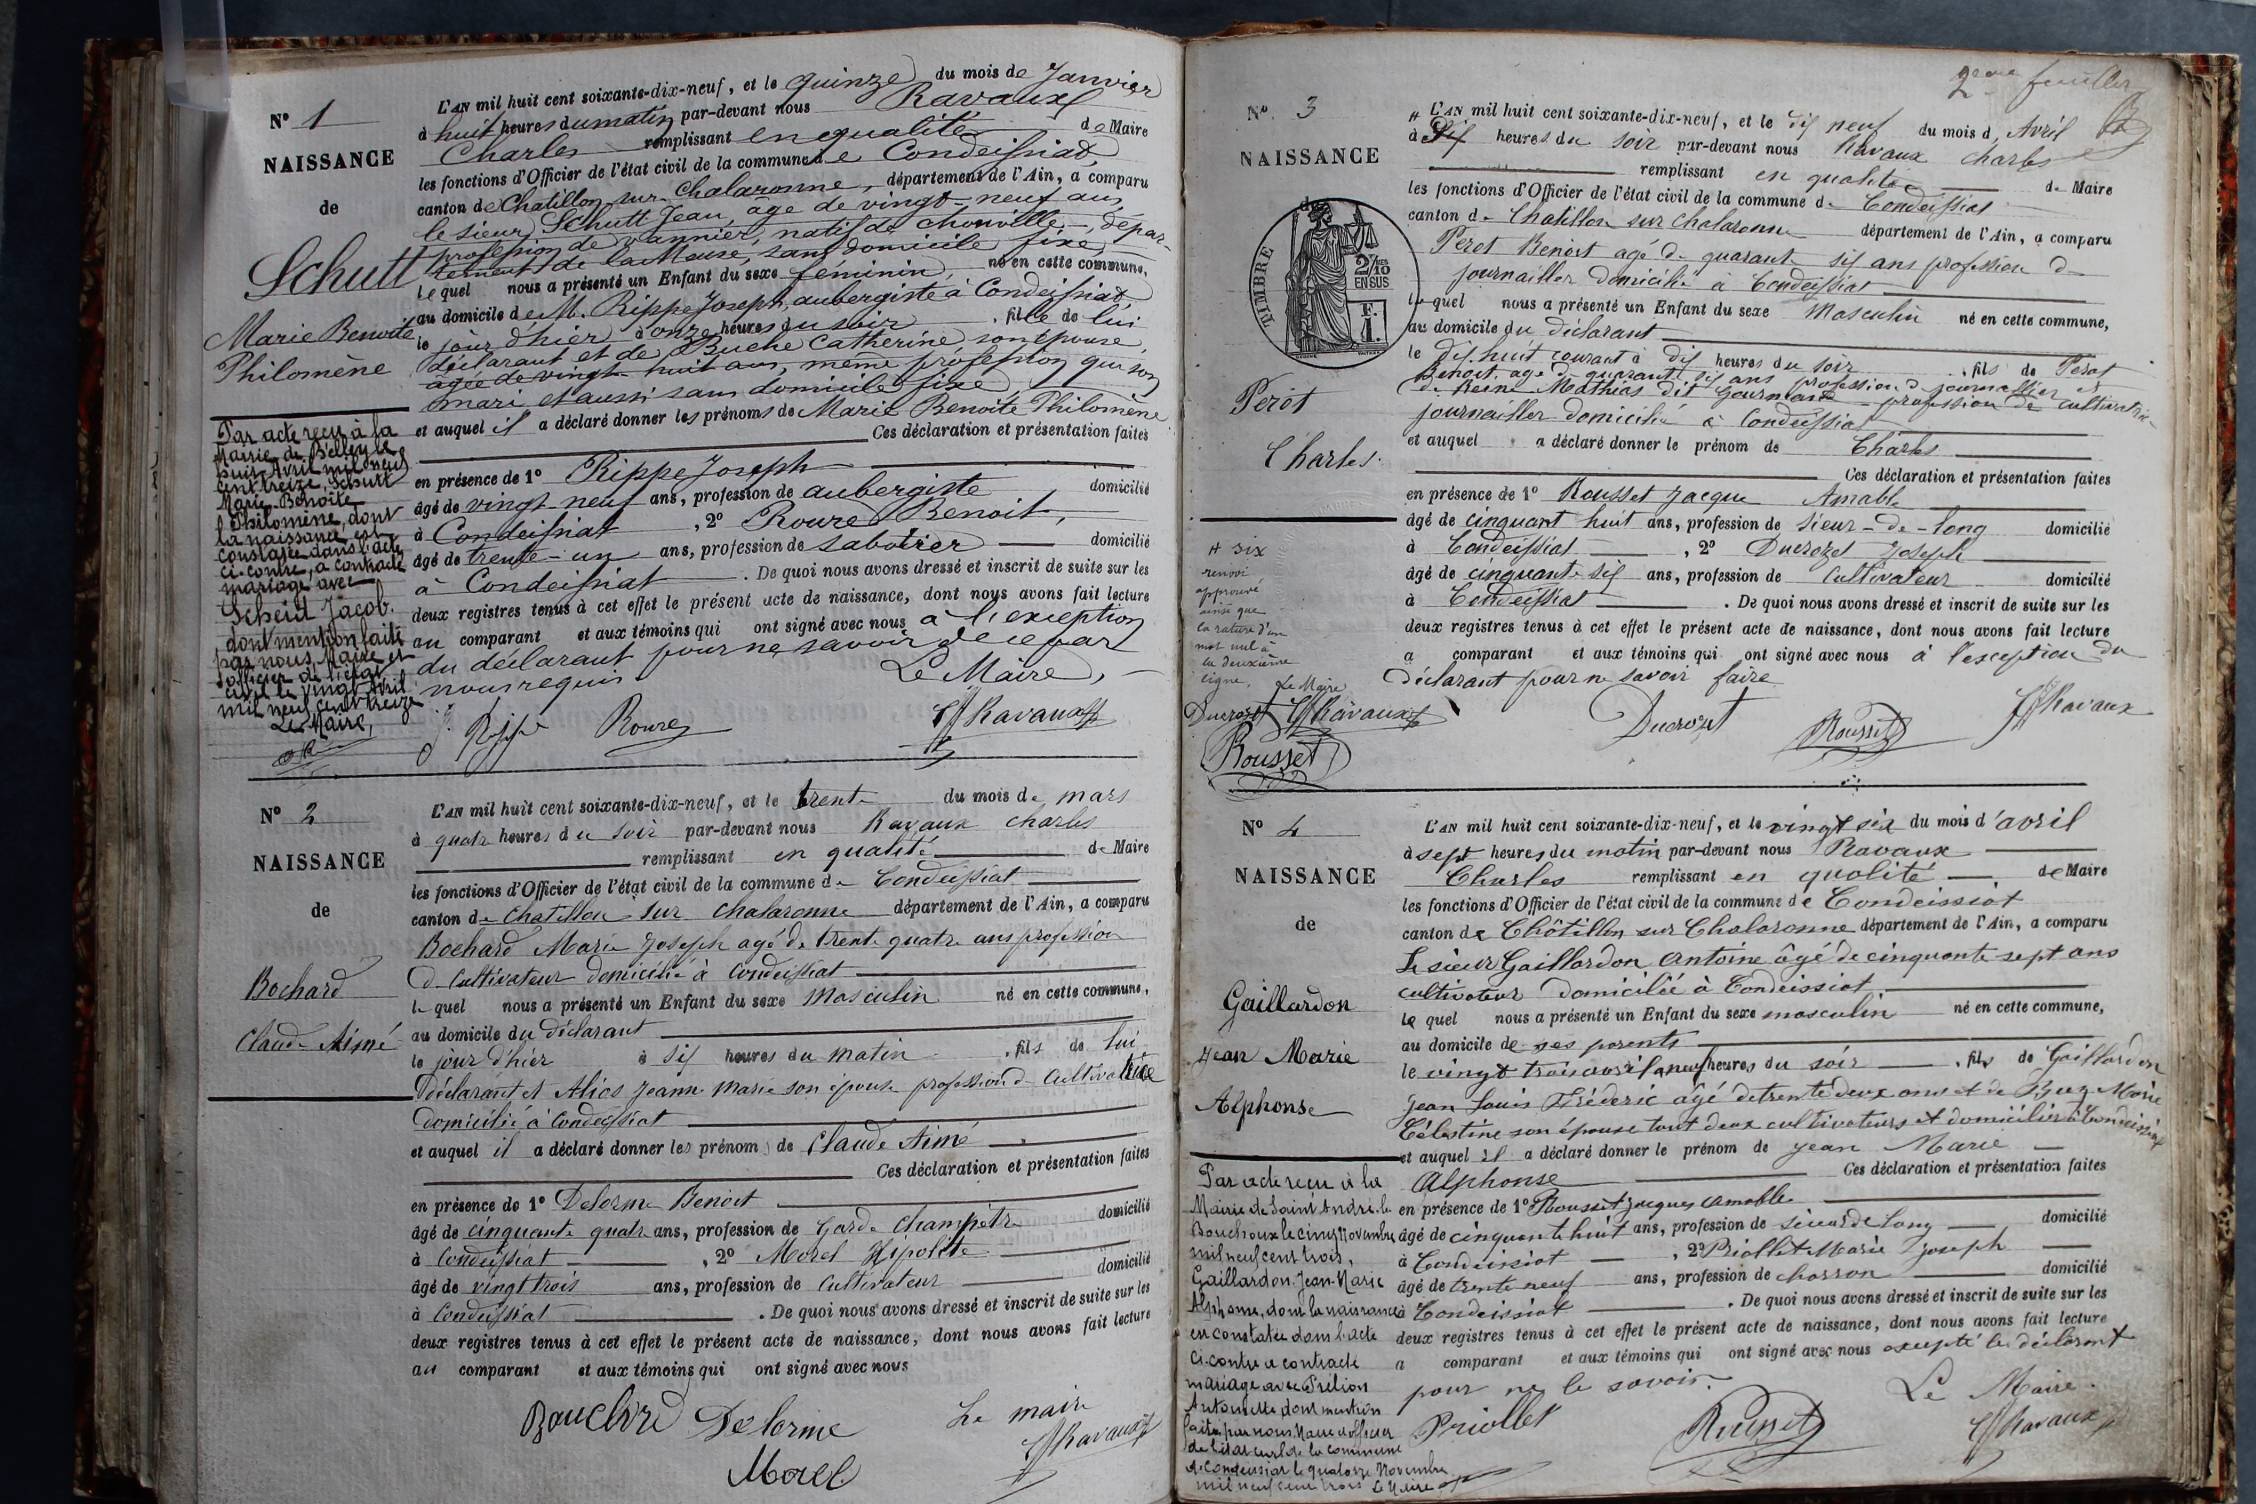 N° 1
NAISSANCE
de
Schutt
Marie Benoite
Philomène
Par acte reçu à la
Mairie de Belley le
huit Avril mil neuf
cent treize, Schutt
Marie-Benoite
Philomène, dont
la naissance est
constatée dans l'acte
ci-contre, a contracté
mariage avec
Scheid Jacob.
dont mention faite
par nous, Maire et
officier de l'état
civil le vingt Avril
mil neuf cent treize
Le Maire,
L'AN mil huit cent soixante-dix-neuf, et le quinze du mois de Janvier
à huit heures du matin par-devant nous Ravaux
Charles remplissant en qualité de Maire
les fonctions d'Officier de l'état civil de la commune de Condeissiat,
canton de Chatillon sur Chalaronne, département de l'Ain, a comparu
le sieur Schutt Jean, âgé de vingt-neuf ans,
profession de vannier, natif de Chonville, dépar-
tement de la Meuse, sans domicile fixe
lequel nous a présenté un Enfant du sexe féminin, né en cette commune,
au domicile de M. Rippe Joseph, aubergiste à Condeissiat,
le jour d'hier à onze heures du soir, fille de lui
déclarant et de Buche Catherine, son épouse,
âgée de vingt-huit ans, même profession que son
mari et aussi sans domicile fixe
et auquel il a déclaré donner les prénoms de Marie Benoite Philomène
Ces déclaration et présentation faites
en présence de 1° Rippe Joseph
âgé de vingt neuf ans, profession de aubergiste, domicilié
à Condeissiat, 2° Roure Benoit,
âgé de trente-un ans, profession de sabotier domicilié
à Condeissiat. De quoi nous avons dressé et inscrit de suite sur les
deux registres tenus à cet effet le présent acte de naissance, dont nous avons fait lecture
au comparant et aux témoins qui ont signé avec nous à l'exception
du déclarant pour ne savoir de ce par
nous requis. Le Maire,
J. Rippe Roure Ravaux
N° 2
NAISSANCE
de
Bochard
Claude Aimé
L'AN mil huit cent soixante-dix-neuf, et le trente du mois de mars
à quatre heures du soir par-devant nous Ravaux Charles
remplissant en qualité de Maire
les fonctions d'Officier de l'état civil de la commune de Condeissiat
canton de Chatillon sur Chalaronne département de l'Ain, a comparu
Bochard Marie Joseph agé de trente quatre ans profession
de cultivateur domicilié à Condeissiat
lequel nous a présenté un Enfant du sexe Masculin né en cette commune,
au domicile du déclarant
le jour d'hier à six heures du matin, fils de lui
Déclarant et Alics Jeanne Marie son épouse profession de cultivatrice
domicilié à Condeissiat
et auquel il a déclaré donner les prénoms de Claude Aimé
Ces déclaration et présentation faites
en présence de 1° Delorme Benoit
âgé de cinquante quatre ans, profession de Garde Champêtre domicilié
à Condeissiat, 2° Morel Hipolite
âgé de vingt trois ans, profession de Cultivateur domicilié
à Condeissiat. De quoi nous avons dressé et inscrit de suite sur les
deux registres tenus à cet effet le présent acte de naissance, dont nous avons fait lecture
au comparant et aux témoins qui ont signé avec nous
Delorme Le maire
Morel Ravaux
2eme feuillet
N° 3
NAISSANCE
de
TIMBRE
2/10
EN SUS
F.
1.
Perot
Charles.
# six
renvoi
approuvé
ainsi que
la rature d'un
mot nul à
la deuxième
ligne. Le Maire
Ducrozet Ravaux
Rousset
# L'AN mil huit cent soixante-dix-neuf, et le dix neuf du mois d'Avril
à heures du soir par-devant nous Ravaux Charles
remplissant en qualité de Maire
les fonctions d'Officier de l'état civil de la commune de Condeissiat
canton de Chatillon sur Chalaronne département de l'Ain, a comparu
Perot Benoit agé de quarante six ans profession de
journaillier domicilié à Condeissiat
lequel nous a présenté un Enfant du sexe Masculin né en cette commune,
au domicile du déclarant
le dix huit courant à dix heures du soir, fils de Perot
Benoit agé de quarante six ans profession de journaillier et
de Reine Mathias dit Gourmand profession de cultivatrice
journaillier domicilié à Condeissiat
et auquel a déclaré donner le prénom de Charles
Ces déclaration et présentation faites
en présence de 1° Rousset Jacque Amable
âgé de cinquant huit ans, profession de sieur-de-long domicilié
à Condeissiat, 2° Ducrozet Joseph
âgé de cinquante six ans, profession de cultivateur domicilié
à Condeissiat. De quoi nous avons dressé et inscrit de suite sur les
deux registres tenus à cet effet le présent acte de naissance, dont nous avons fait lecture
a comparant et aux témoins qui ont signé avec nous à l'exception du
déclarant pour ne savoir faire
Ducrozet Rousset Ravaux
N° 4
NAISSANCE
de
Gaillardon
Jean Marie
Alphonse
Par acte reçu à la
Mairie de Saint André le
Bouchoux le cinq Novembre
mil neuf cent trois,
Gaillardon Jean-Marie
Alphonse, dont la naissance
en constatée dans l'acte
ci-contre a contracté
mariage avec Prélion
Antoinette dont mention
faite par nous Maire et officier
de l'état civil de la commune
de Condeissiat le quatorze Novembre
mil neuf cent trois Le Maire
L'AN mil huit cent soixante-dix-neuf, et le vingt six du mois d'avril
à sept heures du matin par-devant nous Ravaux
Charles remplissant en qualité de Maire
les fonctions d'Officier de l'état civil de la commune de Condeissiat
canton de Châtillon sur Chalaronne département de l'Ain, a comparu
Le sieur Gaillardon Antoine âgé de cinquante sept ans
cultivateur domiciliée à Condeissiat
lequel nous a présenté un Enfant du sexe masculin né en cette commune,
au domicile de ses parents
le vingt trois avril à neuf heures du soir, fils de Gaillardon
Jean Louis Fréderic âgé de trente deux ans et de Buz Marie
Célestine son épouse tout deux cultivateurs et domiciliés à Condeissiat
et auquel il a déclaré donner le prénom de Jean Marie
Alphonse Ces déclaration et présentation faites
en présence de 1° Rousset Jacques Amable
âgé de cinquante huit ans, profession de sieur de long domicilié
à Condeissiat, 2° Priollet Marie Joseph
âgé de trente neuf ans, profession de charron domicilié
à Condeissiat. De quoi nous avons dressé et inscrit de suite sur les
deux registres tenus à cet effet le présent acte de naissance, dont nous avons fait lecture
a comparant et aux témoins qui ont signé avec nous excepté le déclarant
pour ne le savoir. Le Maire.
Priollet Rousset Ravaux